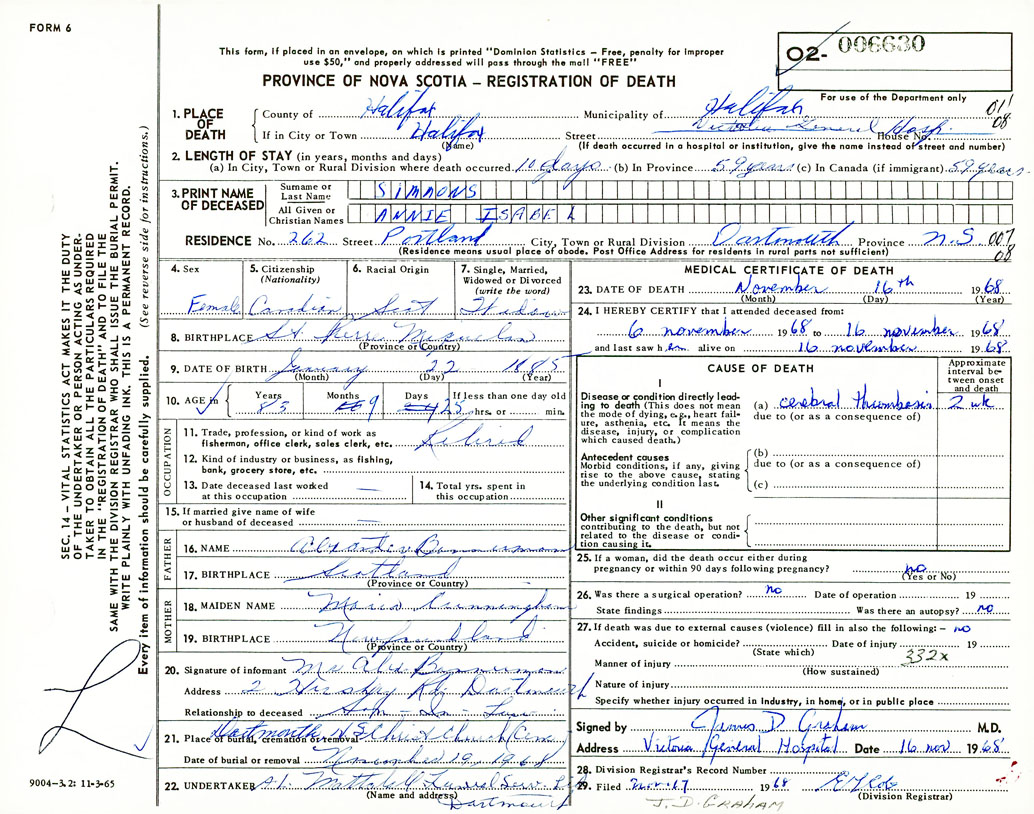 FORM 6
02- 006630
This form, if placed in an envelope, on which is printed "Dominion Statistics – Free, penalty for improper
use $50," and properly addressed will pass through the mail "FREE"
PROVINCE OF NOVA SCOTIA – REGISTRATION OF DEATH
For use of the Department only
1. PLACE OF DEATH
County of Halifax Municipality of Halifax 01'
08
If in City or Town Halifax Street Victoria General Hosp. House No.
(Name) (If death occurred in a hospital or institution, give the name instead of street and number)
2. LENGTH OF STAY (in years, months and days)
(a) In City, Town or Rural Division where death occurred 10 days (b) In Province 59 years (c) In Canada (if immigrant) 59 years
3. PRINT NAME OF DECEASED
Surname or Last Name SIMMONS
All Given or Christian Names ANNIE ISABEL
RESIDENCE No. 262 Street Portland City, Town or Rural Division Dartmouth Province N.S 007
08
(Residence means usual place of abode. Post Office Address for residents in rural parts not sufficient)
4. Sex
Female
5. Citizenship (Nationality)
Canadian
6. Racial Origin
Scot
7. Single, Married, Widowed or Divorced (write the word)
Widow
8. BIRTHPLACE St Pierre Miquelon
(Province or Country)
9. DATE OF BIRTH January 22 1885
(Month) (Day) (Year)
10. AGE in Years Months Days If less than one day old
83 9 25 hrs. or min.
OCCUPATION
11. Trade, profession, or kind of work as
fisherman, office clerk, sales clerk, etc. Retired
12. Kind of industry or business, as fishing,
bank, grocery store, etc.
13. Date deceased last worked
at this occupation
14. Total yrs. spent in
this occupation
15. If married give name of wife
or husband of deceased
FATHER
16. NAME Alexander Bannerman
17. BIRTHPLACE Scotland
(Province or Country)
MOTHER
18. MAIDEN NAME Maria Cunningham
19. BIRTHPLACE Newfoundland
(Province or Country)
20. Signature of informant Mr Alex Bannerman
Address 2 Rd. Dartmouth
Relationship to deceased Son - In - Law
21. Place of burial, cremation or removal Dartmouth N S Christ Church Cem
Date of burial or removal November 19, 1968
22. UNDERTAKER Mattatall Funeral Serv.
(Name and address) Dartmouth
MEDICAL CERTIFICATE OF DEATH
23. DATE OF DEATH November 16th 1968
(Month) (Day) (Year)
24. I HEREBY CERTIFY that I attended deceased from:
6 november 1968 to 16 november 1968
and last saw her alive on 16 november 1968
CAUSE OF DEATH
Approximate interval between onset and death
I
Disease or condition directly leading to death (This does not mean the mode of dying, e.g., heart failure, asthenia, etc. It means the disease, injury, or complication which caused death.)
(a) cerebral thrombosis 2 wk
due to (or as a consequence of)
Antecedent causes
Morbid conditions, if any, giving rise to the above cause, stating the underlying condition last.
(b)
due to (or as a consequence of)
(c)
II
Other significant conditions
contributing to the death, but not related to the disease or condition causing it.
25. If a woman, did the death occur either during
pregnancy or within 90 days following pregnancy? no
(Yes or No)
26. Was there a surgical operation? no Date of operation 19
State findings Was there an autopsy? no
27. If death was due to external causes (violence) fill in also the following: – no
Accident, suicide or homicide? Date of injury 19
(State which) 332x
Manner of injury
(How sustained)
Nature of injury
Specify whether injury occurred in Industry, in home, or in public place
Signed by James D Graham M.D.
Address Victoria General Hospital Date 16 nov 1968
28. Division Registrar's Record Number
29. Filed Nov. 17 1968
(Division Registrar)
J. D. GRAHAM
SEC. 14 – VITAL STATISTICS ACT MAKES IT THE DUTY
OF THE UNDERTAKER OR PERSON ACTING AS UNDER-
TAKER TO OBTAIN ALL THE PARTICULARS REQUIRED
IN THE "REGISTRATION OF DEATH" AND TO FILE THE
SAME WITH THE DIVISION REGISTRAR WHO SHALL ISSUE THE BURIAL PERMIT.
WRITE PLAINLY WITH UNFADING INK. THIS IS A PERMANENT RECORD.
Every item of information should be carefully supplied. (See reverse side for instructions.)
9004–3.2: 11-3-65